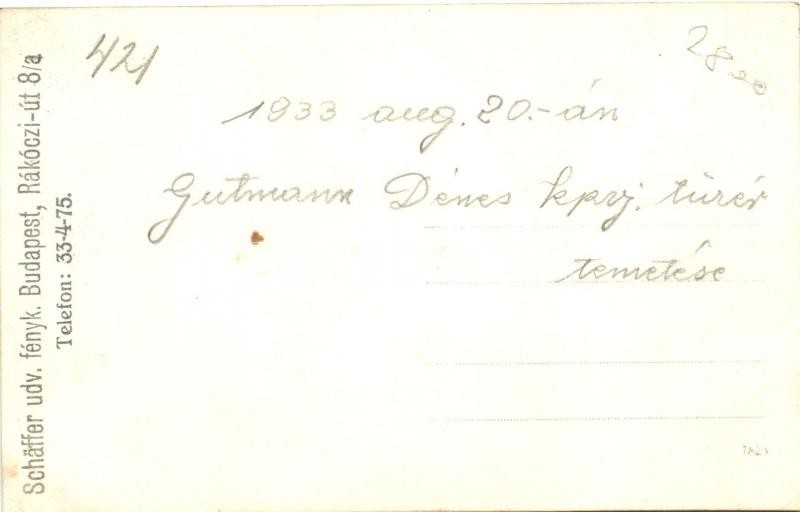 421
28
1933 aug. 20.-án
Gutmann Dénes kprj. tüzér
temetése
Schäffer udv. fényk. Budapest, Rákóczi-út 8/a
Telefon: 33-4-75.